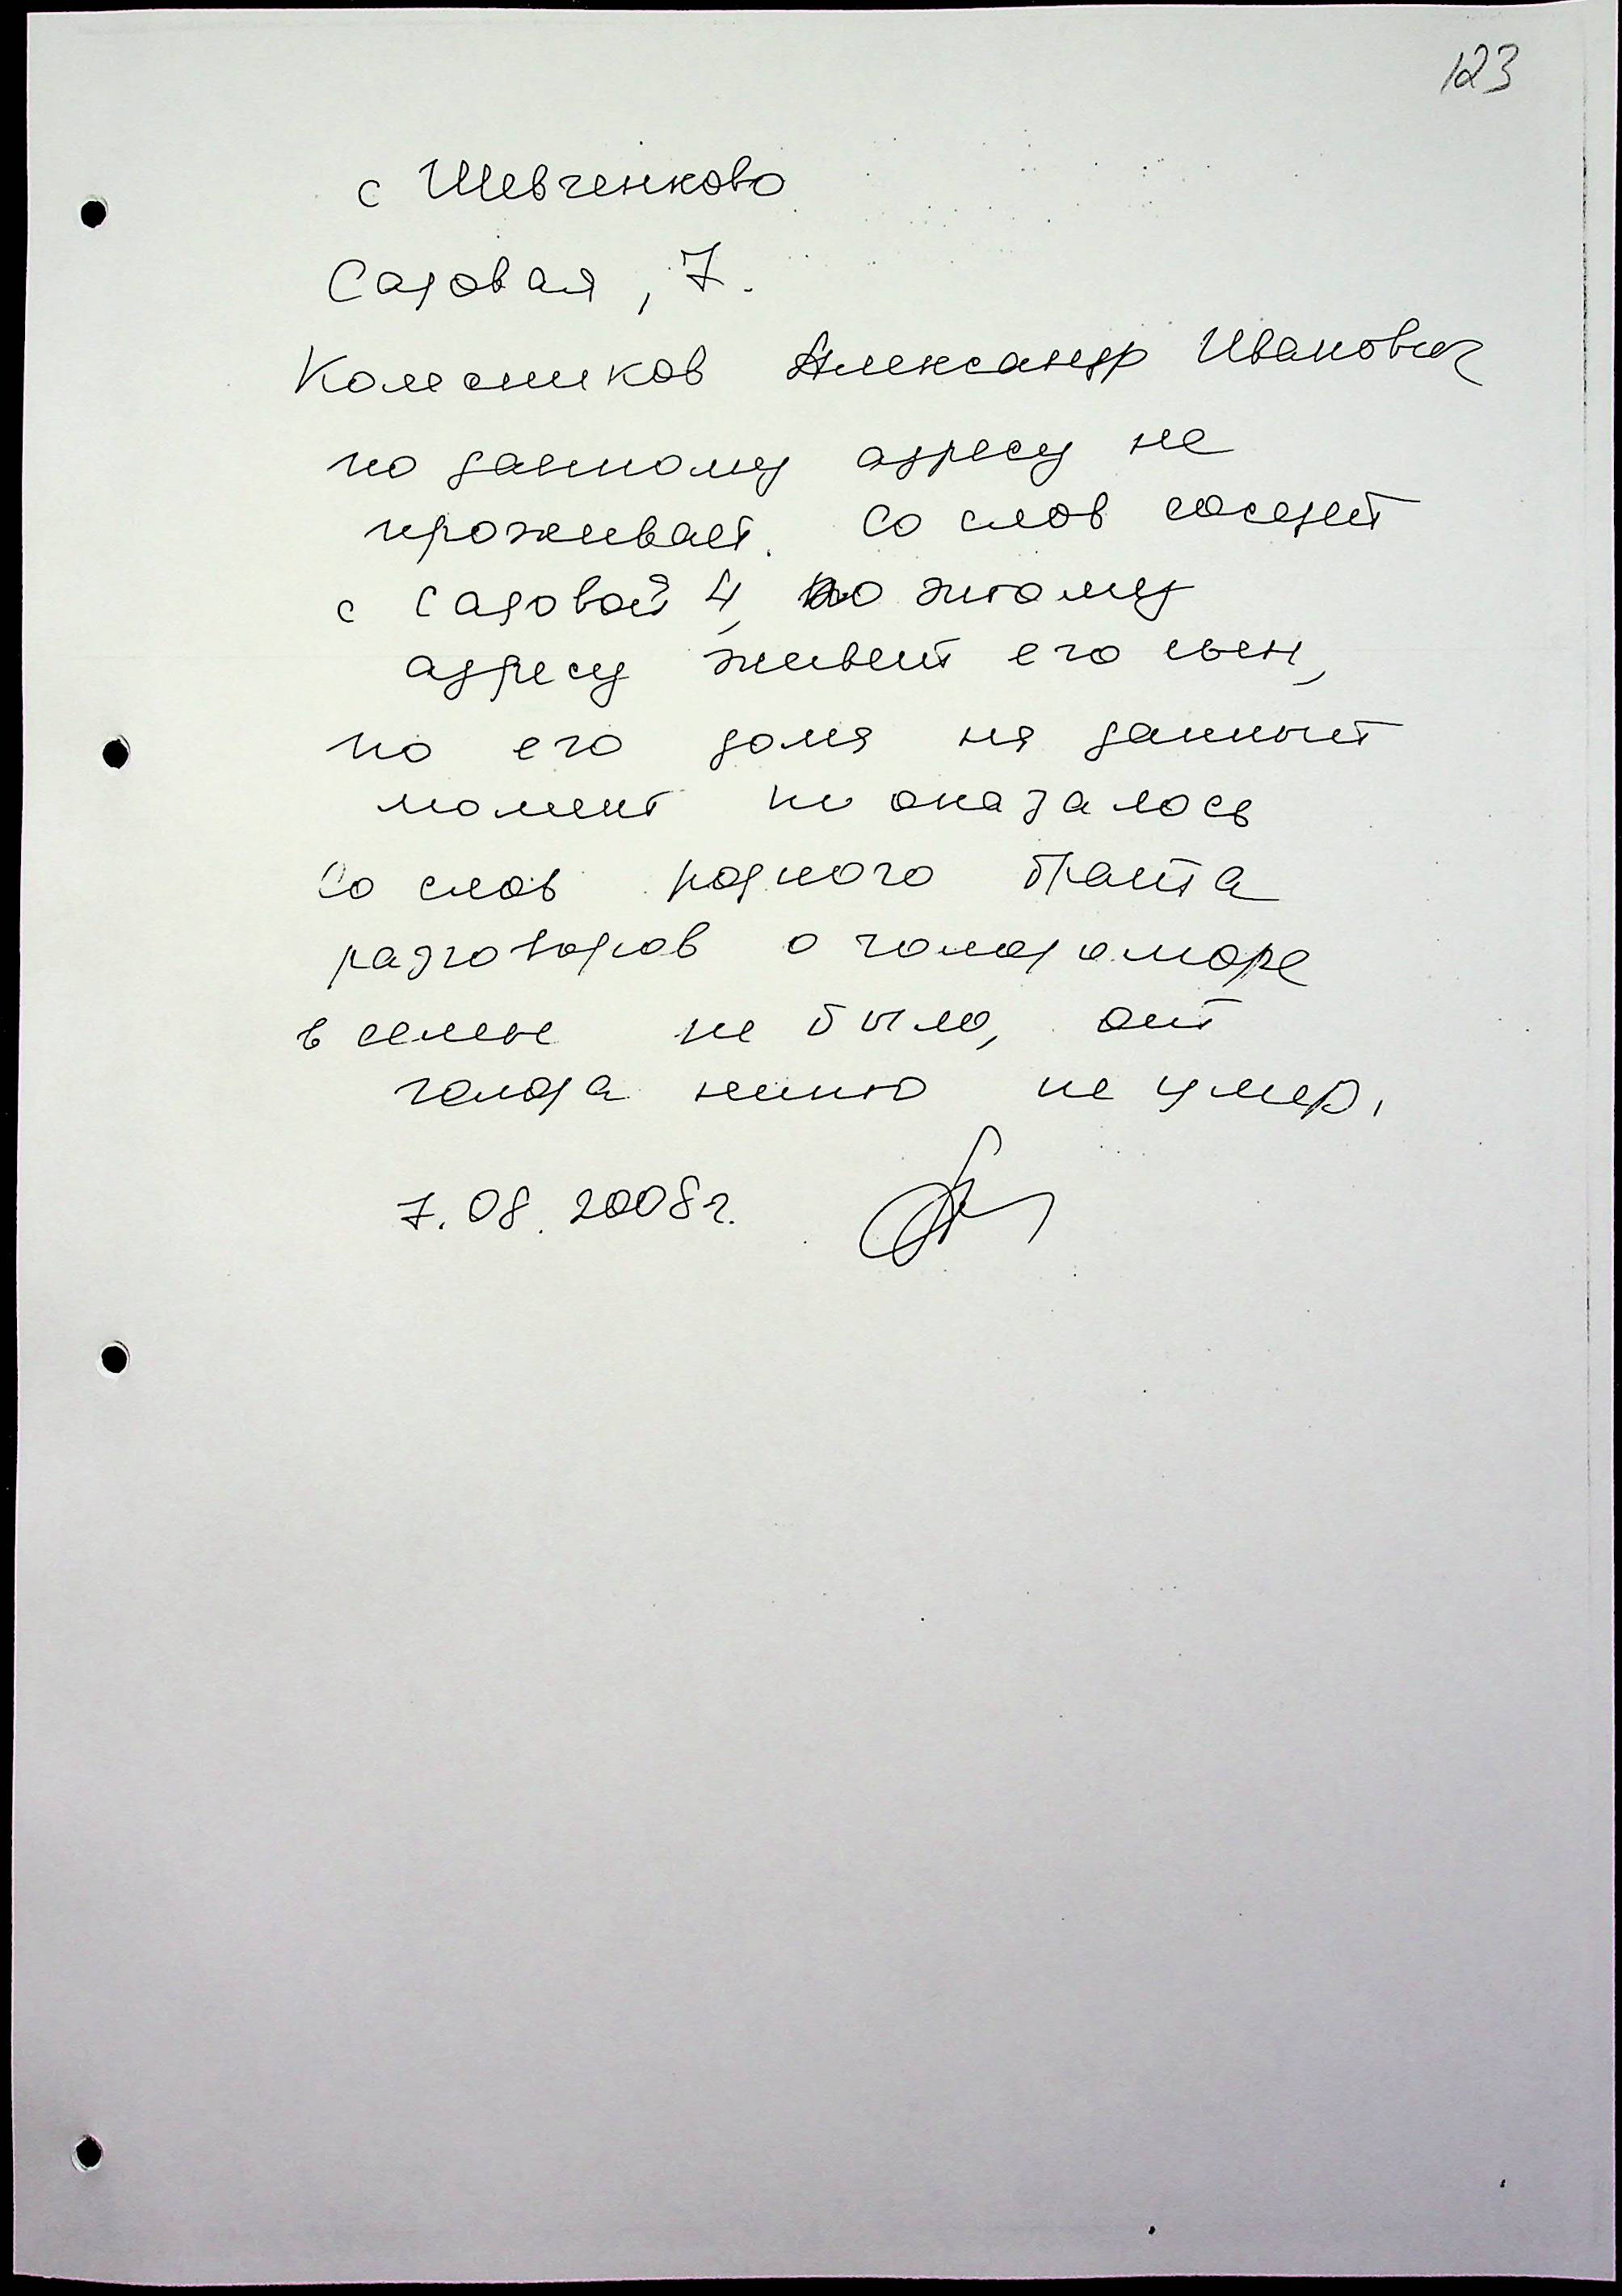 123
с Шевченково
Садовая, 7.
Колесников Александр Иванович
по данному адресу не
проживает. Со слов соседей
с Садовой 4, по этому
адресу живет его сын,
но его дома на данный
момент не оказалось
Со слов родного брата
разговоров о голодоморе
в семье не было, от
голода никто не умер.
7.08.2008г.